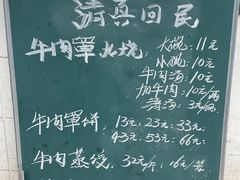 清真回民
牛肉罩火烧, 大碗: 11元
小碗: 10元
牛肉汤: 10元
加牛肉: 10元
清汤: 3元/碗
牛肉罩饼, 13元: 23元: 33元:
43元: 53元: 66元:
牛肉蒸饺, 32元/斤 16元/笼